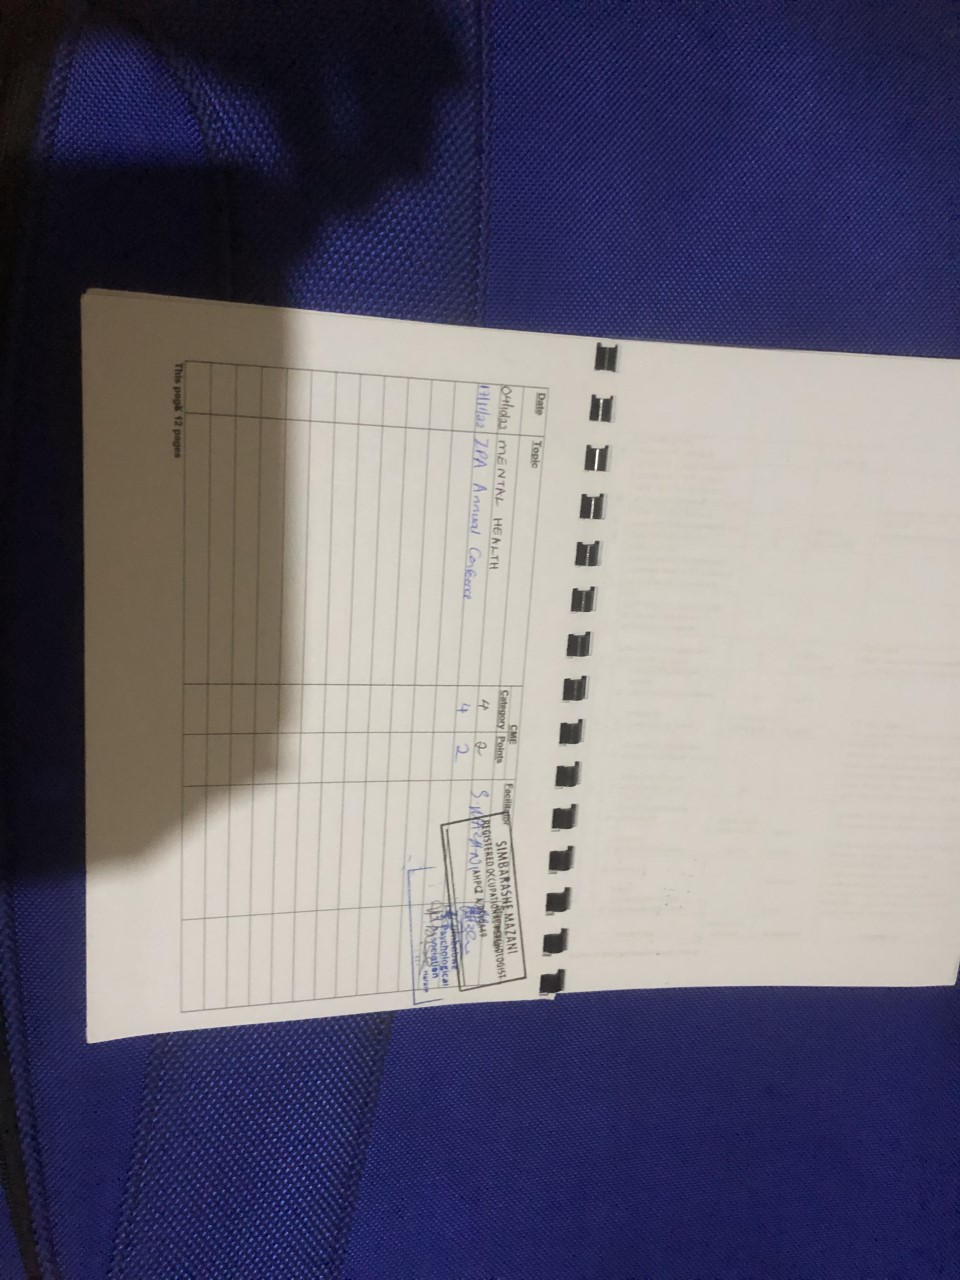 Date Topic CME Category Points Facilitator
04/10/22 MENTAL HEALTH 4 2 S. MAZANI
17/11/22 ZPA Annual Conference 4 2
SIMBARASHE MAZANI
REGISTERED OCCUPATIONAL PSYCHOLOGIST
AHPCZ
Zimbabwe
Psychological
Association
This page 12 pages